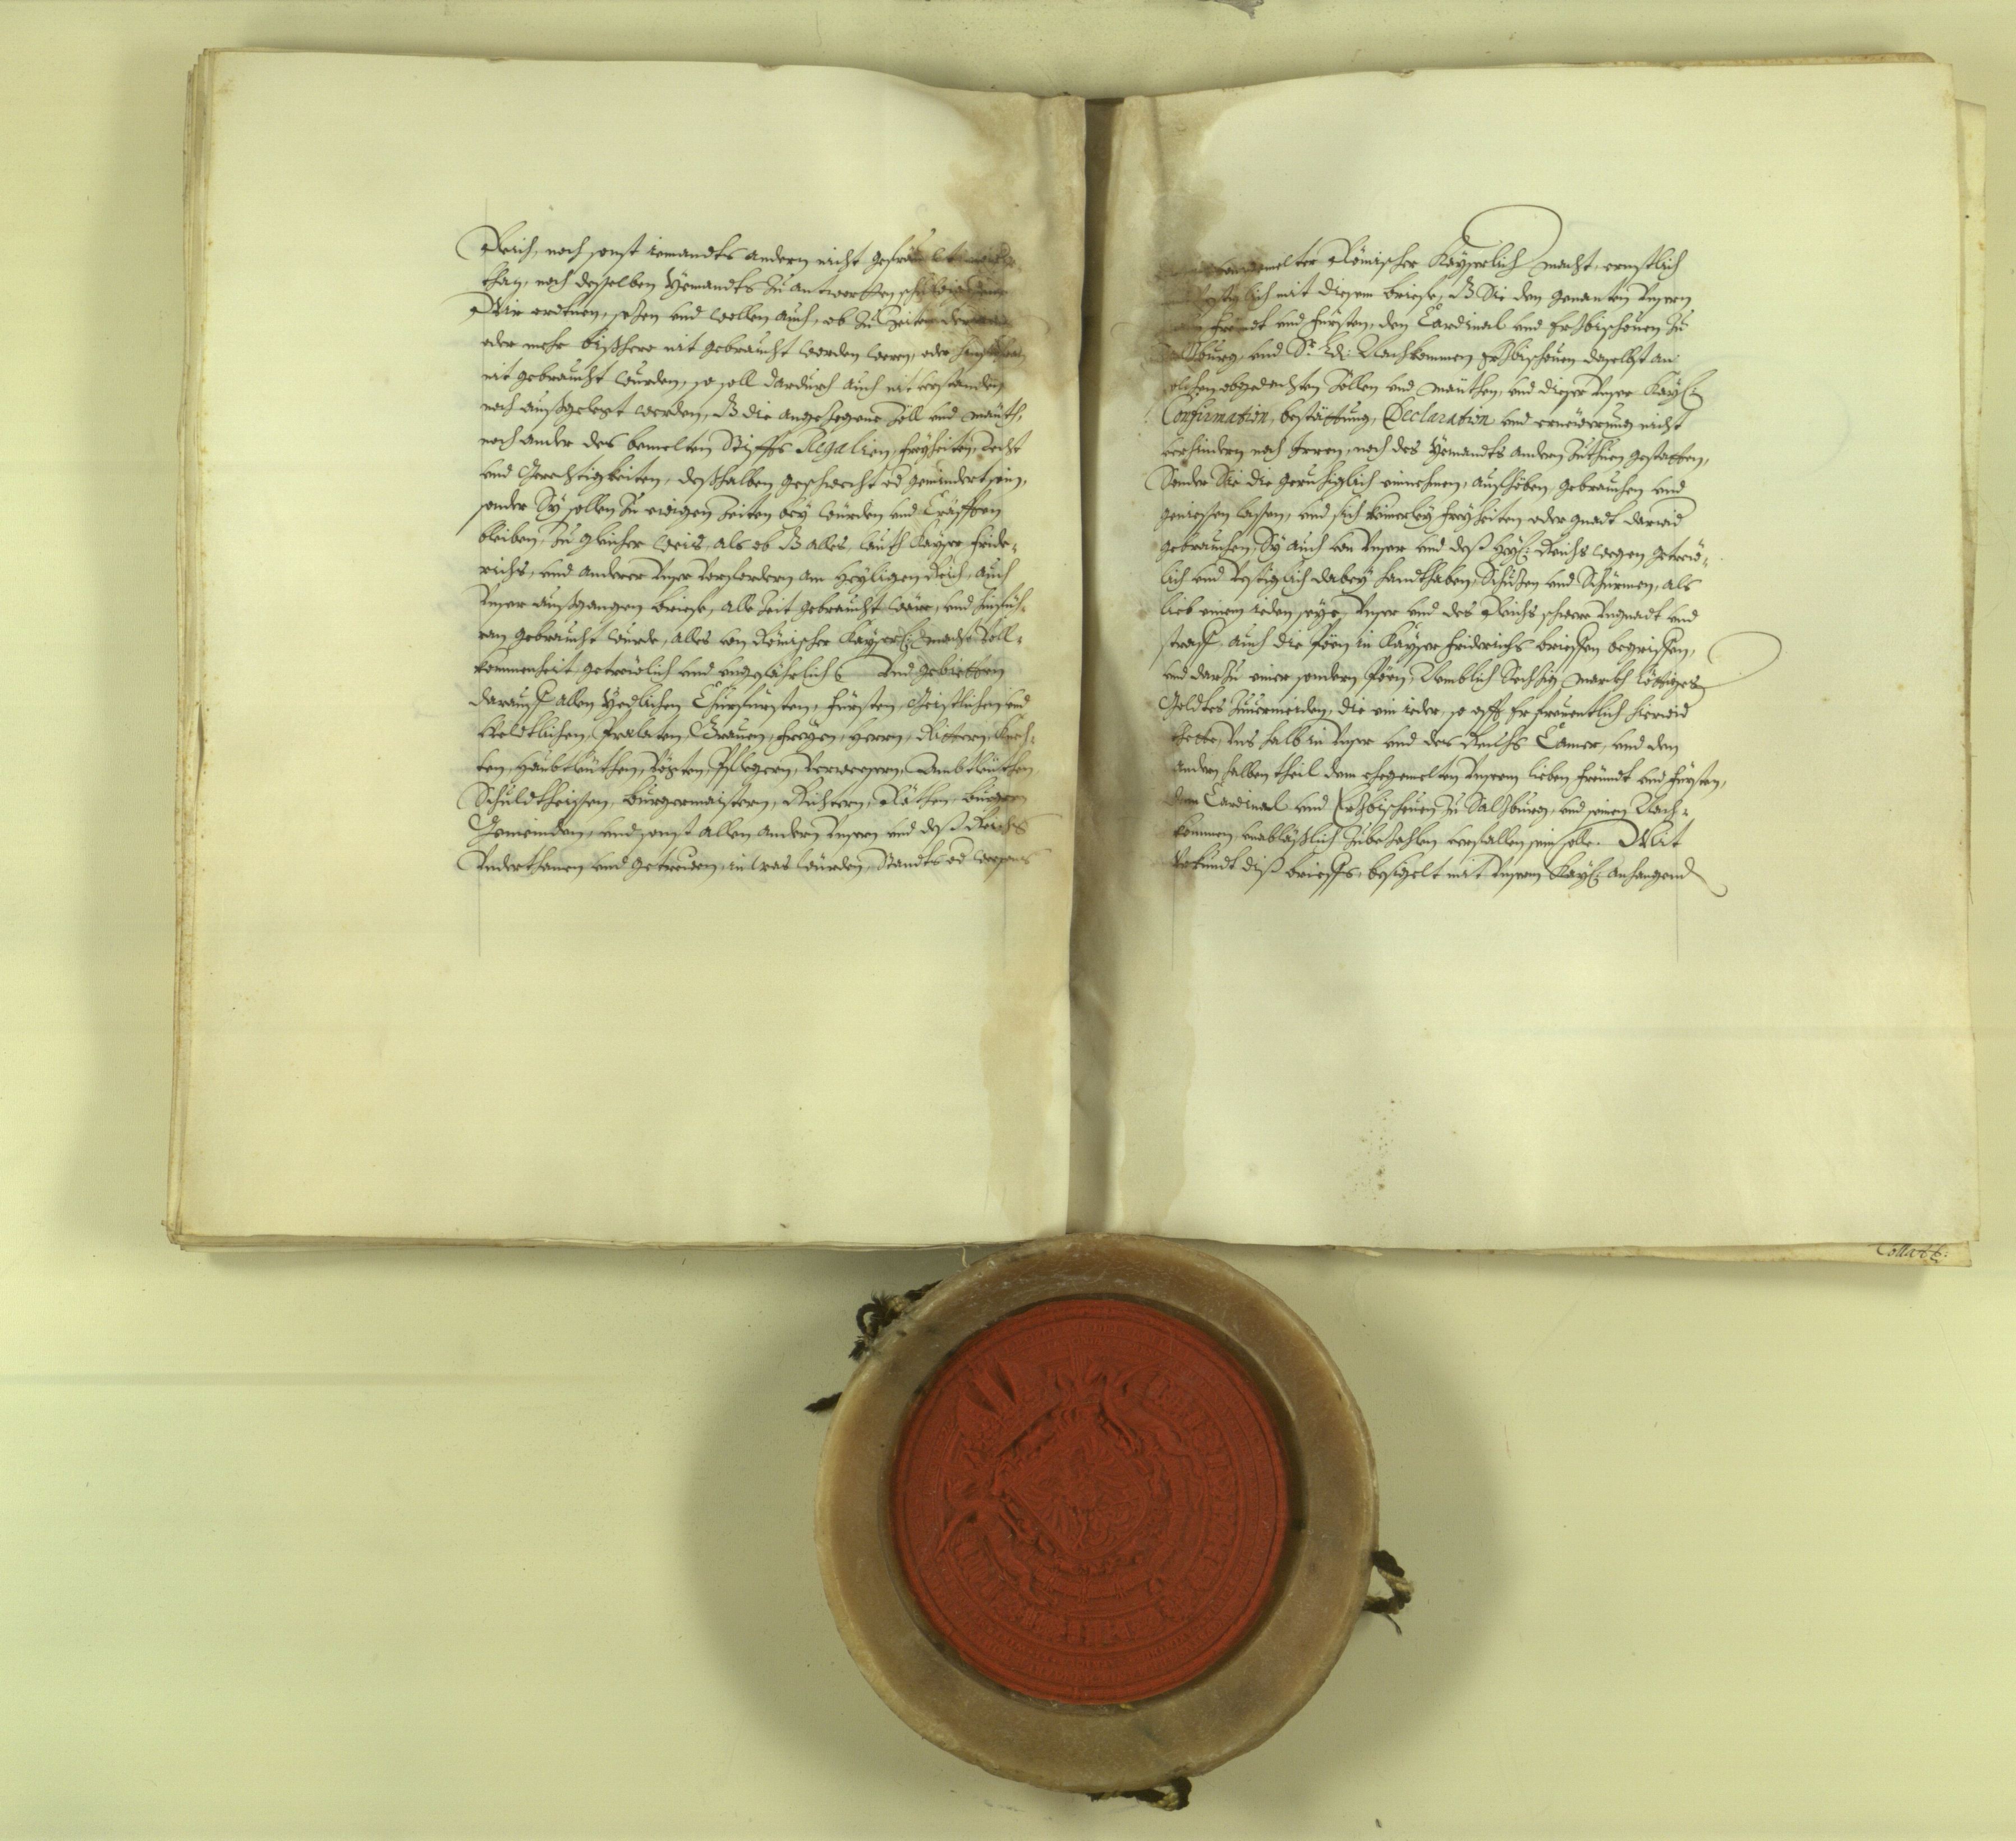 Reich, noch sonst iemandts andern nicht gefräuelt
than, noch desselben Yemandts zu antwortten schuldig sein
Wir ordtnen, sezen und wollen auch, ob zu Zeiten deren
oder mehr bißhero nit gebraucht worden weren, oder hinfüran
nit gebraucht wurden, so soll dardurch auch nit verstanden
noch außgelegt werden, dz die angezogene Zöll und mäuth,
noch ander des bemelten Stiffts Regalien, freyheiten, Recht
und Gerechtigkeiten, deßhalben geschwecht od gemindert sein,
sonder Sy sollen zu ewigen Zeiten bey würden und Cräfften
bleiben, zu gleicher weis, als ob dz alles, lauth Kayser Fride-
richs, und anderer Unser Vorfordern am Heyligen Reich, auch
Unser außgangen briefe, alle Zeit gebraucht wäre, und hinfüh-
ran gebraucht wurde, alles von Römischer Kayserlr macht Voll-
kommenheit getrewlich und ungefährlich. Und gebietten
darauff allen Yedlichen Churfursten, Fürsten, Geistlichen und
Weldtlichen, Prælaten, Grauen, Freyen, Herrn, Rittern, Knech-
ten, Haubtleuthen, Vögten, Pflegern, Verwesern, Ambtleuthen,
Schuldtheissen, burgermaistern, Richtern, Räthen, burgern
Gemeinden, und sonst allen andern Unsern und deß Reichs
Underthanen und getreuen, in was würden, Standts od wesens
melter Römischer Kayserlich macht, ernstlich
und vestiglich mit diesem briefe, dz Sie den genanten Unsern
freundt und Fürsten, den Cardinal und Erzbischouen zu
Salzburg, und Sr. Ld: Nachkommen Erzbischouen daselbst an
solchen obgedachten Zöllen und mäuthen, und dieser Unser Kayl:
Confirmation, bestättung, Declaration und ernewerung nicht
verhindern noch Irren, noch des Yemandts andern zuthuen gestatten,
Sonder Sie die geruhiglich einnehmen, aufheben, gebrauchen und
geniessen lassen, und sich keinerley freyheiten oder gnadt darwid
gebrauchen, Sy auch von Unser und deß Heyl: Reichs wegen getrew-
lich und vestiglich dabey handthaben, Schuzen und Schürmen, als
lieb einem ieden seye, Unser und des Reichs schwere Ungnadt und
straff, auch die Pöen in Kayser Friderichs brieffen begriffen,
und darzu einer sondern Pöen, Nemblich Sechzig Marckh löttiges
Goldtes zuuermeiden, die ein ieder, so offt Er freuentlich hierwid
thette, Uns halb in Unser und des Reichs Camer, und den
andern halben theil dem ehegemelten Unserm lieben freundt und Fürsten,
dem Cardinal und Erzbischouen zu Salzburg, und seinen Nach-
kommen, unabläßlich zubezahlen verfallen sein solle. Mit
Urkundt diß brieffs, besigelt mit Unserm Kayl: anhangend
Collatt: